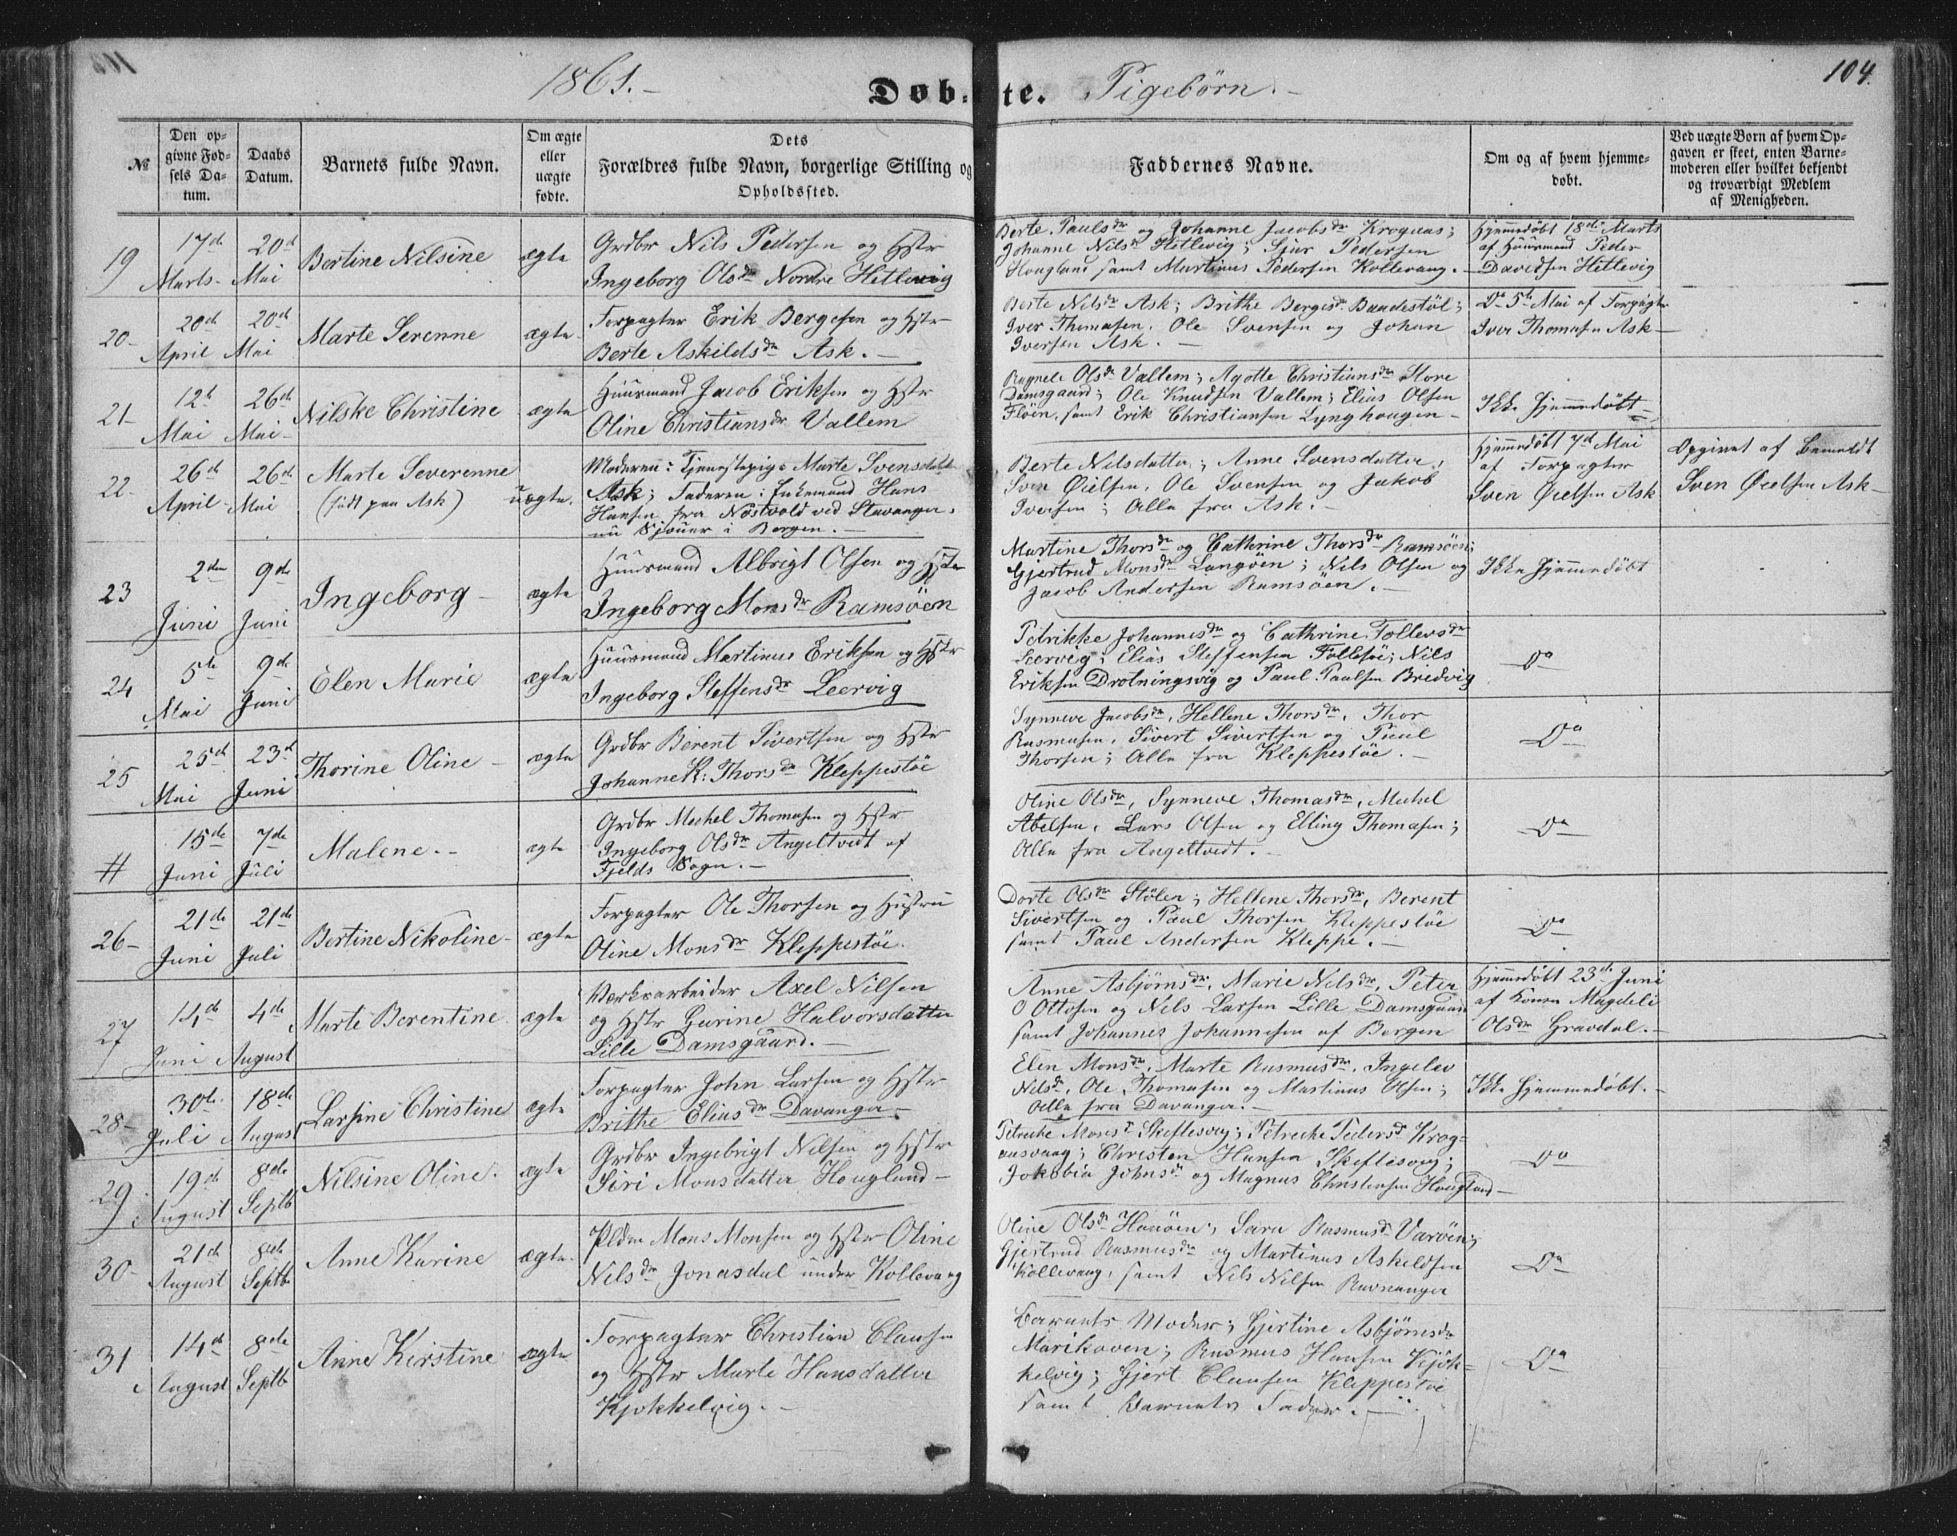 1861.- Døbte. Pigebørn.- 104.
№
Den op-
givne Fød-
sels Da-
tum.
Daabs
Datum.
Barnets fulde Navn.
Om ægte
eller
uægte
fødte.
Dets
Forældres fulde Navn, borgerlige Stilling og
Opholdssted.
Faddernes Navne.
Om og af hvem hjemme-
døbt.
Ved uægte Børn af hvem Op-
gaven er skeet, enten Barne-
moderen eller hvilket bekjendt
og troværdigt Medlem
af Menigheden.
19
17de
Marts-
20de
Mai
Bertine Nilsine
ægte
Grdbr Nils Pedersen og Hstr
Ingeborg Olsdr Nordre Hetlevig
Berte Paulsdr og Johanne Jacobsdr Krognæs;
Johanne Nilsdr Hetlevig; Sjur Pedersen
Hougland samt Martinus Pedersen Kollevang.-
Hjemmedøbt 18de Marts
af Huusmand Peder
Davidsen Hetlevig
20-
20de
April
20de
Mai
Marte Serenne
ægte
Forpagter Erik Bergesen og Hstr
Berte Askildsdr Ask.-
Berte Nilsdr Ask; Brithe Bergesdr Baudestøl;
Iver Thomasen, Ole Svensen og Johan
Iversen Ask.-
Do 5te Mai af Forpagter
Iver Thomasen Ask-
21-
12te
Mai
26de
Mai-
Nilske Christine
ægte
Huusmand Jacob Eriksen og Hstr
Oline Christiansdr Vallem
Ragnele Olsdr Vallem; Agotte Christiansdr Store
Damsgaard; Ole Knudsen Vallem; Elias Olsen
Fløen, samt Erik Christiansen Lynghougen-
Ikke Hjemmedøbt-
22-
26de
April-
26de
Mai
Marte Severenne
(født paa Ask)
uægte.
Moderen: Tjenestepige Marte Svensdatter
Ask; Faderen: Enkemand Hans
Hansen fra Nøstvold ved Stavanger,
nu Sjouer i Bergen.-
Berte Nilsdatter; Anne Svensdatter,
Sven Øielsen, Ole Svensen og Jakob
Iversen; Alle fra Ask.-
Hjemmedøbt 7de Mai
af Forpagter
Sven Øielsen Ask
Opgivet af bemeldt
Sven Øielsen Ask-
23
2den
Juni
9de
Juni
Ingeborg-
ægte
Huusmand Albrigt Olsen og Hstr
Ingeborg Monsdr Ramsøen
Martine Thorsdr og Cathrine Thorsdr Ramsøen;
Gjertrud Monsdr Langøen; Nils Olsen og
Jacob Andersen Ramsøen.-
Ikke Hjemmedøbt
24
5te
Mai
9de
Juni
Elen Marie
ægte
Huusmand Martinus Eriksen og Hstr
Ingeborg Steffensdr Leervig
Petrikke Johannesdr og Cathrine Tollevsdr
Leervig; Elias Steffensen Follesøe; Nils
Eriksen Drotningsvig og Paul Paulsen Bredvig
Do
25
25de
Mai
23de
Juni
Thorine Oline-
ægte
Grdbr Berent Sivertsen og Hstr
Johanne K: Thorsdr Kleppestøe
Synneve Jacobsdr, Hellene Thorsdr, Thor
Rasmusen, Sivert Sivertsen og Paul
Thorsen; Alle fra Kleppestøe.-
Do
#
15de
Juni
7de
Juli
Malene.-
ægte
Grdbr Mechel Thomasen og Hstr
Ingeborg Olsdr Angeltvedt af
Fjelds Sogn.-
Oline Olsdr, Synneve Thomasdr, Mechel
Abelsen, Lars Olsen og Elling Thomasen;
Alle fra Angeltvedt.-
Do
26-
21de
Juni
21de
Juli
Bertine Nikoline-
ægte
Forpagter Ole Thorsen og Hustru
Oline Monsdr Kleppestøe.
Dorte Olsdr Stølen; Hellene Thorsdr, Berent
Sivertsen og Paul Thorsen Kleppestøe
samt Paul Andersen Kleppe.-
Do
27
14de
Juni
4de
August
Marte Berentine
ægte
Værksarbeider Axel Nilsen
og Hstr Gurine Halvorsdatter
Lille Damsgaard.-
Anne Asbjørnsdr, Marie Nilsdr, Peter
O Ottosen og Nils Larsen Lille Damsgaard
samt Johannes Johannesen af Bergen
Hjemmedøbt 23de Juni
af Konen Magdeli
Olsdr Gravdal.-
28-
30te
Juli
18de
August
Larsine Christine
ægte
Forpagter John Larsen og Hstr
Brithe Eliasdr Davanger-
Elen Monsdr, Marte Rasmusdr, Ingelev
Nilsdr, Ole Thomasen og Martinus Olsen;
Alle fra Davanger.-
Ikke Hjemmedøbt.-
29
19de
August
8de
Septb
Nilsine Oline.
ægte
Grdbr Ingebrigt Nilsen og Hstr
Siri Monsdatter Hougland-
Petreche Monsd Skeflesvig; Petreche Pedersd Krog-
aasvaag; Christen Hansen Skeflesvig;
Jokobia Johnsdr og Magnus Christensen Hougland-
Do
30-
21de
August
8de
Septb
Anne Karine
ægte
Pldm Mons Monsen og Hstr Oline
Nilsdr Jonasdal under Kollevaag
Oline Olsdr Hanøen; Sara Rasmusd Varøen;
Gjertrud Rasmusdr og Martinus Askeldsen
Kollevaag, samt Nils Nilsen Ravnanger
Do
31
14de
August
8de
Septb
Anne Kirstine
ægte
Forpagter Christian Clausen
og Hstr Marte Hansdatter
Kjøkkelvig.-
Barnets Moder; Gjertine Asbjørnsdr
Marikoven; Rasmus Hansen Kjøk-
kelvig; Gjert Clausen Kleppestøe
samt Barnets Fader.-
Do